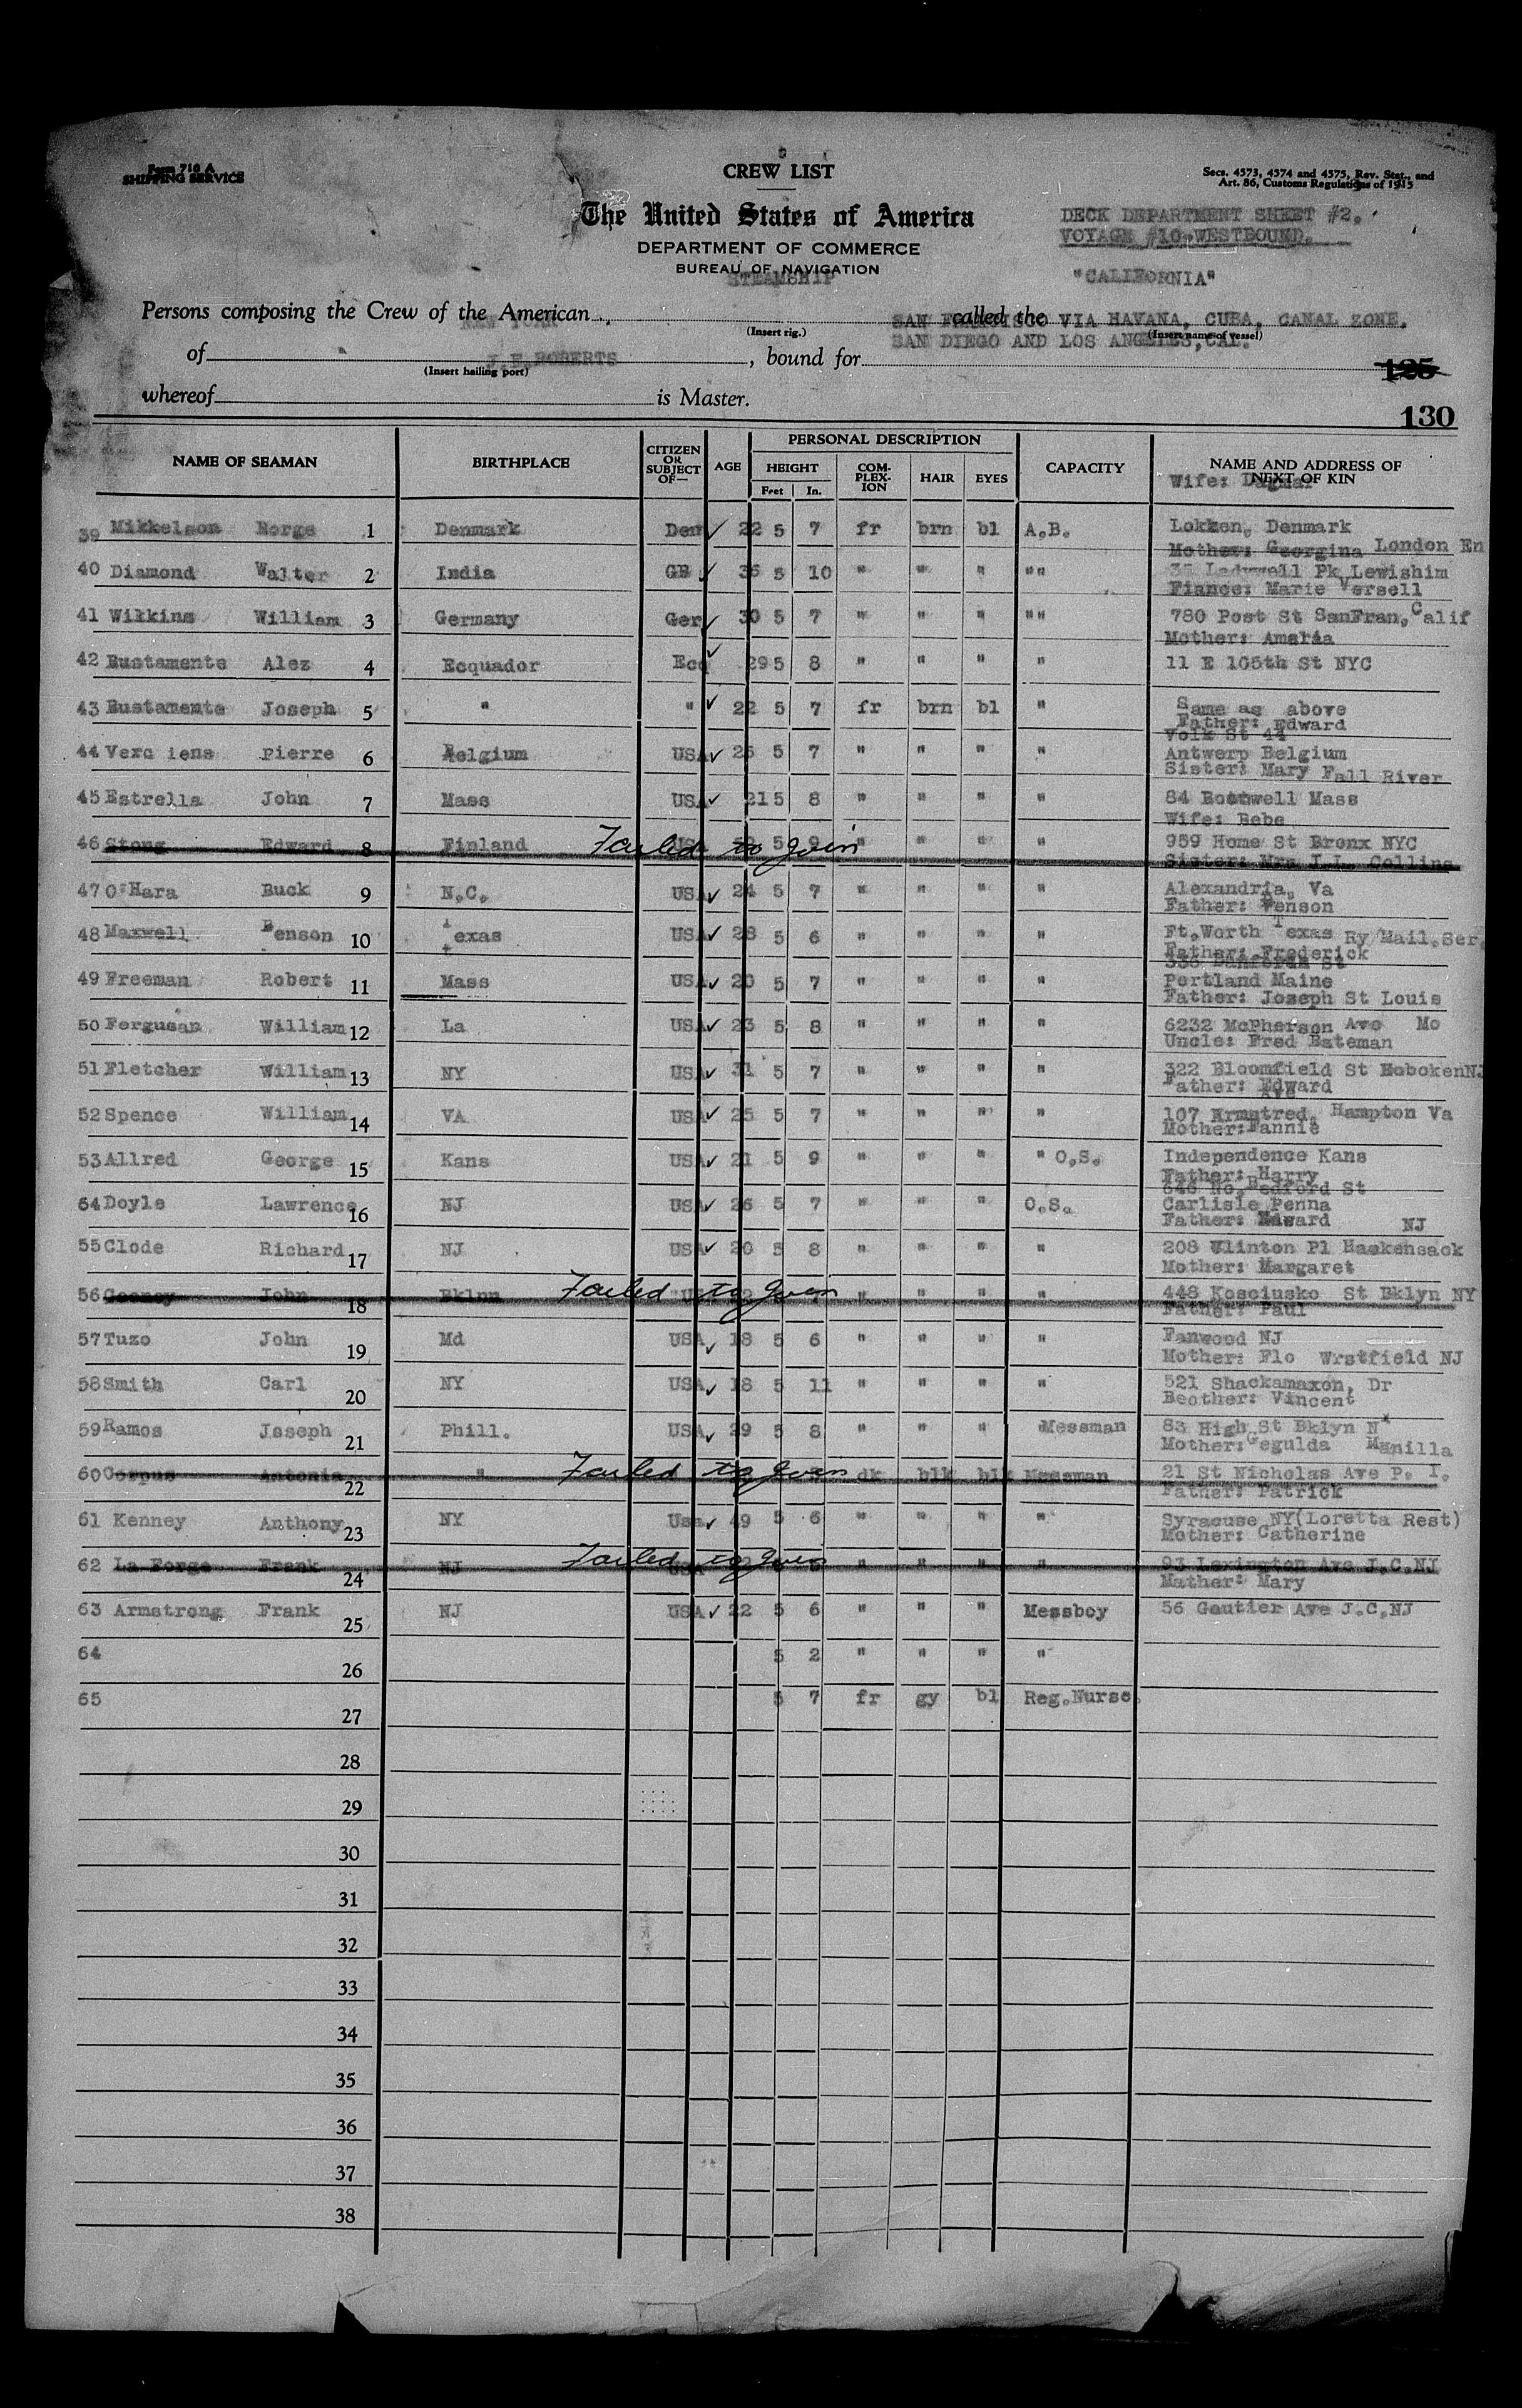 Form 710 A
SHIPPING SERVICE
CREW LIST
Secs. 4573, 4574 and 4575, Rev. Stat., and
Art. 86, Customs Regulations of 1915
The United States of America
DECK DEPARTMENT SHEET #2.
VOYAGE #10.WESTBOUND.
DEPARTMENT OF COMMERCE
BUREAU OF NAVIGATION
STEAMSHIP "CALIFORNIA"
Persons composing the Crew of the American called the
NEW YORK SAN FRANCISCO VIA HAVANA, CUBA, CANAL ZONE,
(Insert rig.) (Insert name of vessel)
SAN DIEGO AND LOS ANGELES,CAL.
of J.F.ROBERTS , bound for
(Insert hailing port) 125
whereof is Master.
130
NAME OF SEAMAN BIRTHPLACE CITIZEN OR SUBJECT OF— AGE PERSONAL DESCRIPTION CAPACITY NAME AND ADDRESS OF NEXT OF KIN
HEIGHT COM-PLEX-ION HAIR EYES
Feet In.
Wife: Dagmar
39 Mikkelson Borge 1 Denmark Den ✓ 22 5 7 fr brn bl A.B. Lokken, Denmark
Mother: Georgina London En
40 Diamond Walter 2 India GB ✓ 36 5 10 " " " "" Ladywell Pk Lewishim
Fiance: Marie Versell
41 Wilkins William 3 Germany Ger ✓ 30 5 7 " " " "" 780 Post St SanFran, Calif
Mother: Amaria
42 Bustamente Alez 4 Ecquador Ecq ✓ 29 5 8 " " " " 11 E 105th St NYC
43 Bustamente Joseph 5 " " ✓ 22 5 7 fr brn bl " Same as above
Father: Edward
Volk St 44
44 Pierre 6 Belgium USA ✓ 25 5 7 " " " " Antwerp Belgium
Sister: Mary Fall River
45 Estrella John 7 Mass USA ✓ 21 5 8 " " " " 84 Bothwell Mass
Wife: Bebe
46 Stong Edward 8 Finland Failed to join " " " 959 Home St Bronx NYC
Sister: Mrs J.L. Collins
47 O'Hara Buck 9 N.C. USA ✓ 24 5 7 " " " " Alexandria, Va
Father: Benson
48 Maxwell Benson 10 Texas USA ✓ 28 5 6 " " " " Ft.Worth Texas Ry Mail.Ser.
Father: Frederick
335 Danforth St
49 Freeman Robert 11 Mass USA ✓ 20 5 7 " " " " Portland Maine
Father: Joseph St Louis
50 Fergusan William 12 La USA ✓ 23 5 8 " " " " 6232 McPherson Ave Mo
Uncle: Fred Bateman
51 Fletcher William 13 NY USA ✓ 31 5 7 " " " " 322 Bloomfield St HobokenNJ
Father: Edward
Ave
52 Spence William 14 VA USA ✓ 25 5 7 " " " " 107 Armstred, Hampton Va
Mother:Fannie
53 Allred George 15 Kans USA ✓ 21 5 9 " " " " O.S. Independence Kans
Father: Harry
No, Bedford St
54 Doyle Lawrence 16 NJ USA ✓ 26 5 7 " " " O.S. Carlisle Penna
Father: Edward NJ
55 Clode Richard 17 NJ USA ✓ 20 5 8 " " " " 208 Clinton Pl Hackensack
Mother: Margaret
56 Cooney John 18 Bklnn Failed to join " " " " 448 Kosciusko St Bklyn NY
Father: Paul
57 Tuzo John 19 Md USA ✓ 18 5 6 " " " " Fanwood NJ
Mother: Flo Wrstfield NJ
58 Smith Carl 20 NY USA ✓ 18 5 11 " " " " 521 Shackamaxon, Dr
Beother: Vincent
59 Ramos Joseph 21 Phill. USA ✓ 29 5 8 " " " Messman 83 High St Bklyn N
Mother: Gegulda Manilla
60 Corpus Antonia 22 " Failed to join dk blk blk Messman 21 St Nicholas Ave P. I.
Father: Patrick
61 Kenney Anthony 23 NY Usa ✓ 49 5 6 " " " " Syracuse NY(Loretta Rest)
Mother: Catherine
62 La Forge Frank 24 NJ USA Failed to join " " " " 93 Lexington Ave J.C.NJ
Mather: Mary
63 Armstrong Frank 25 NJ USA ✓ 22 5 6 " " " Messboy 56 Gautier Ave J.C.NJ
64 26 5 2 " " " "
65 27 5 7 fr gy bl Reg.Nurse.
28
29
30
31
32
33
34
35
36
37
38